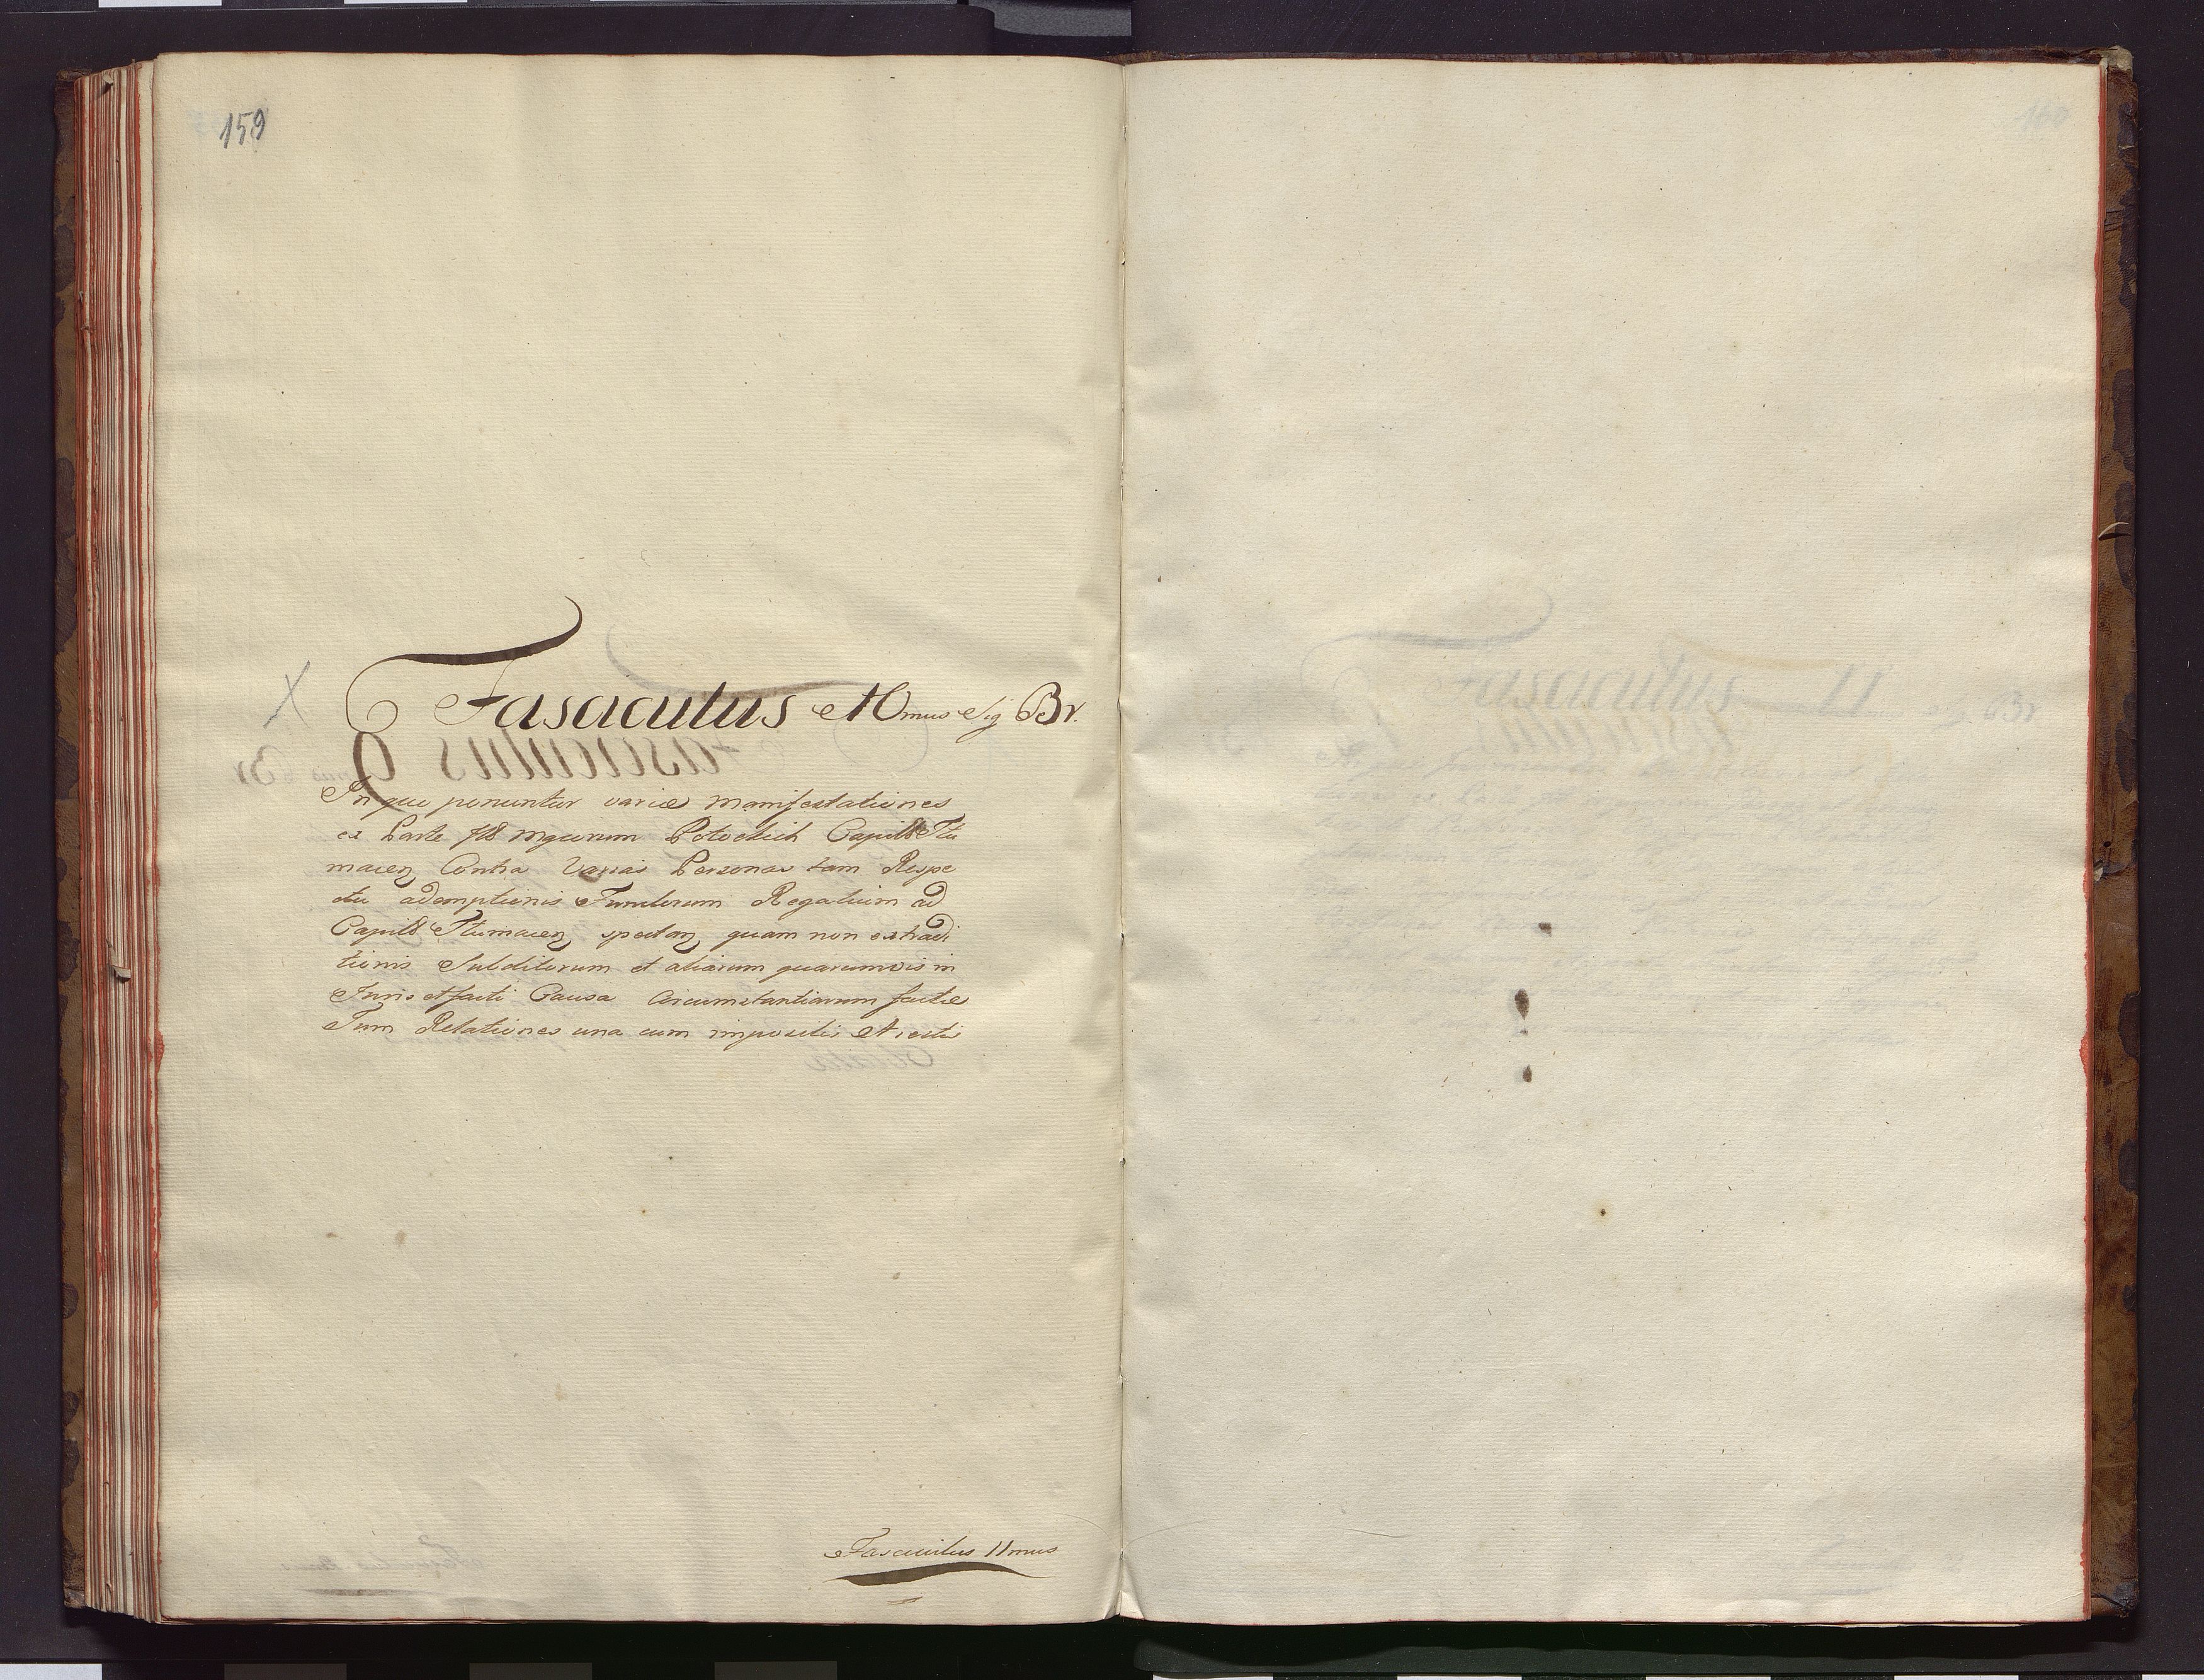 159
Fasciculus 10mus Sig Br.
In quo ponuntur variæ manifestationes
ex Parte Ill Mgcorum Potockich Capitt Tłu
macen Contra Varias Personas tam Respe
ctu ademptionis Fundorum Regalium ad
Capitt Tłumacen spectan quam non extradi
tionis Subditorum et aliarum quarumvis in
Juris et facti Causa Circumstantiarum factæ
Tum Relationes una cum impositis Arestis
Fasciculus 11mus
160